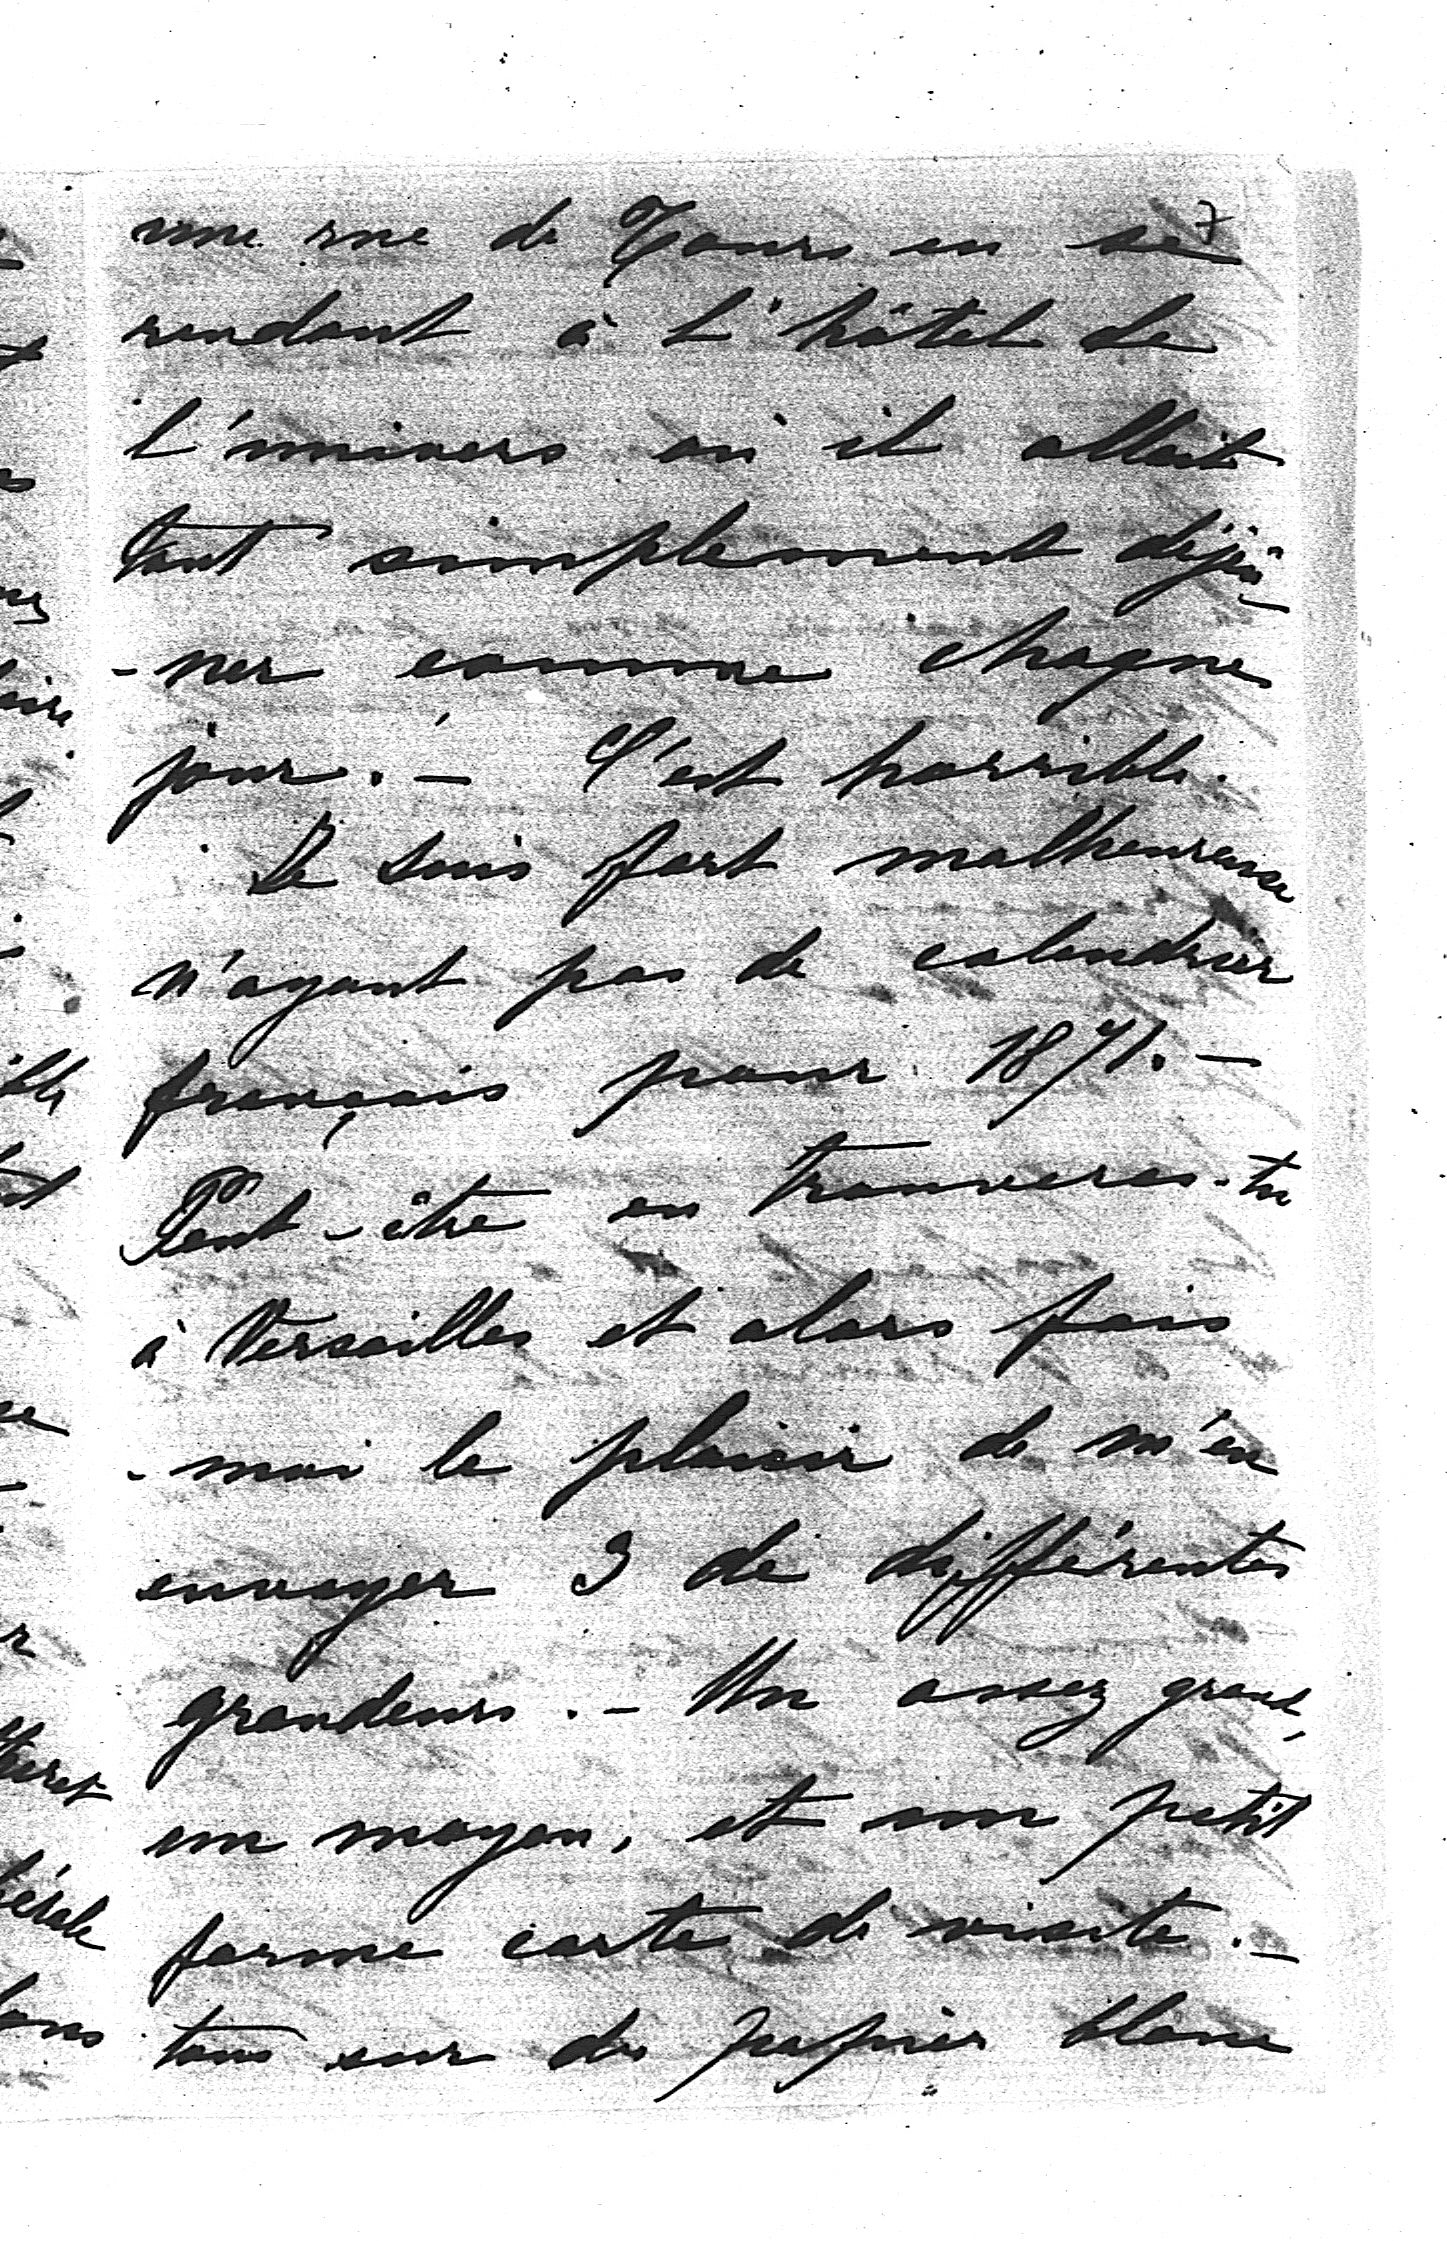 7
une rue de Tours en se
rendant à l'hôtel de
l'univers où il allait
tout simplement déjeû-
-ner comme chaque
jour. - C'est horrible.
Je suis fort malheureuse
n'ayant pas de calendrier
français pour 1871. -
Peut-être en trouveras-tu
à Versailles et alors fais
-moi le plaisir de m'en
envoyer 3 de différentes
grandeurs. - Un assez grand,
un moyen, et un petit
forme carte de visite. -
tous sur du papier blanc